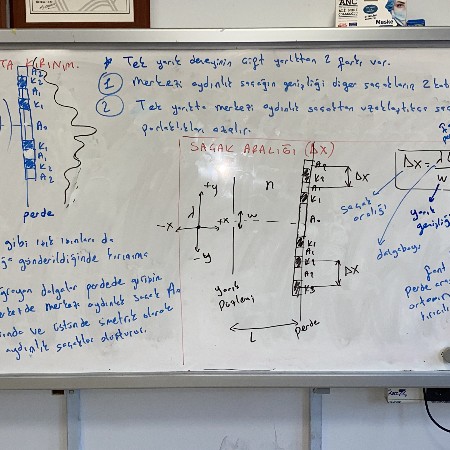 TA KIRINIM.
* Tek yarık deneyinin çift yarıktan 2 farkı var.
① Merkezi aydınlık saçağın genişliği diğer saçakların 2 katı
② Tek yarıkta merkezi aydınlık saçaktan uzaklaştıkça
parlaklıkları azalır.
A₂
K₂
A₁
K₁
A₀
K₁
A₁
K₂
A₂
perde
SAÇAK ARALIĞI (ΔX)
+y
λ
-x
+x
-y
w
n
yarık
Düzlemi
L
A₂
K₂
A₁
K₁
A₀
K₁
K₂
A₂
K₃
ΔX
ΔX
perde
ΔX = λ
w
saçak
aralığı
yarık
dalgaboyu
gibi ışık ışınları da
gönderildiğinde kırınıma
dalgalar perdede girişim
merkezi aydınlık saçak A₀
ve üstünde simetrik olarak
aydınlık saçaklar oluşturur.
ANC
Maske